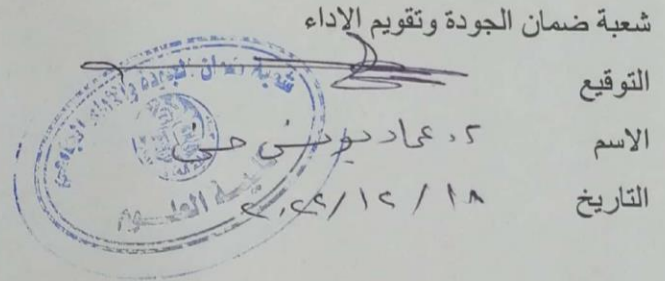 شعبة ضمان الجودة وتقويم الاداء
التوقيع
الاسم د. عماد يونس حسن
التاريخ ١٨ / ١٢ / ٢٠٢٢
شعبة ضمان الجودة والاداء الجامعي
كلية العلوم